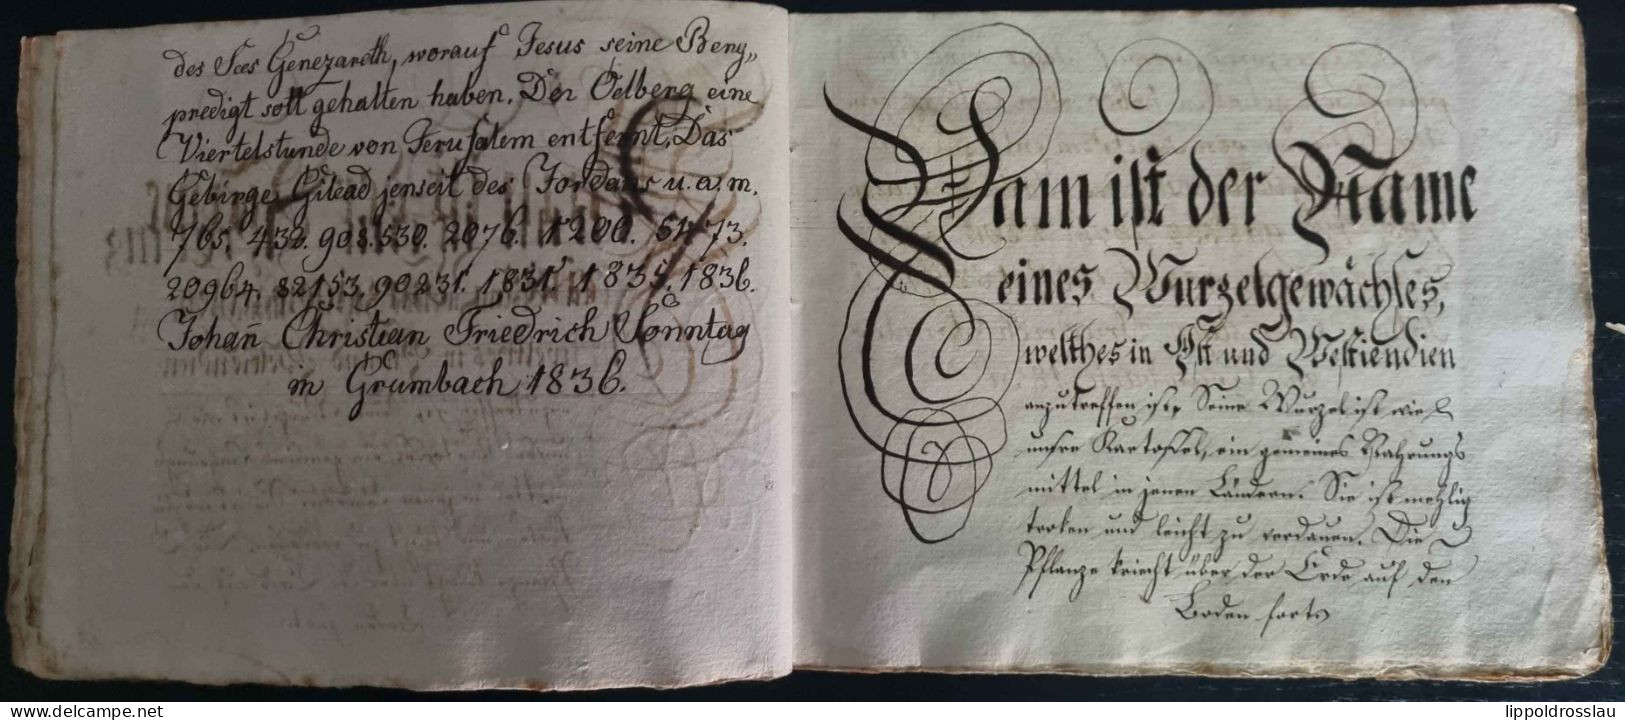 des Sees Genezareth, worauf Jesus seine Berg„
predigt soll gehalten haben. Der Oelberg eine
Viertelstunde von Jerusalem entfernt. Das
Gebirge Gilead jenseit des Jordans u. a. m.
765. 432. 908. 530. 2076. 1200. 5473.
20964. 82153. 90231. 1831. 1835. 1836.
Johañ Christian Friedrich Sonntag
in Grumbach 1836.
Yam ist der Name
eines Wurzelgewächses,
welches in Ost und Westiendien
anzutreffen ist. Seine Wurzel ist wie
unsre Kartoffel, ein gemeines Nahrungs
mittel in jenen Ländern. Sie ist mehlig
troken und leicht zu verdauen. Die
Pflanze kriecht über der Erde auf den
Boden fort.
www.delcampe.net
lippoldrosslau